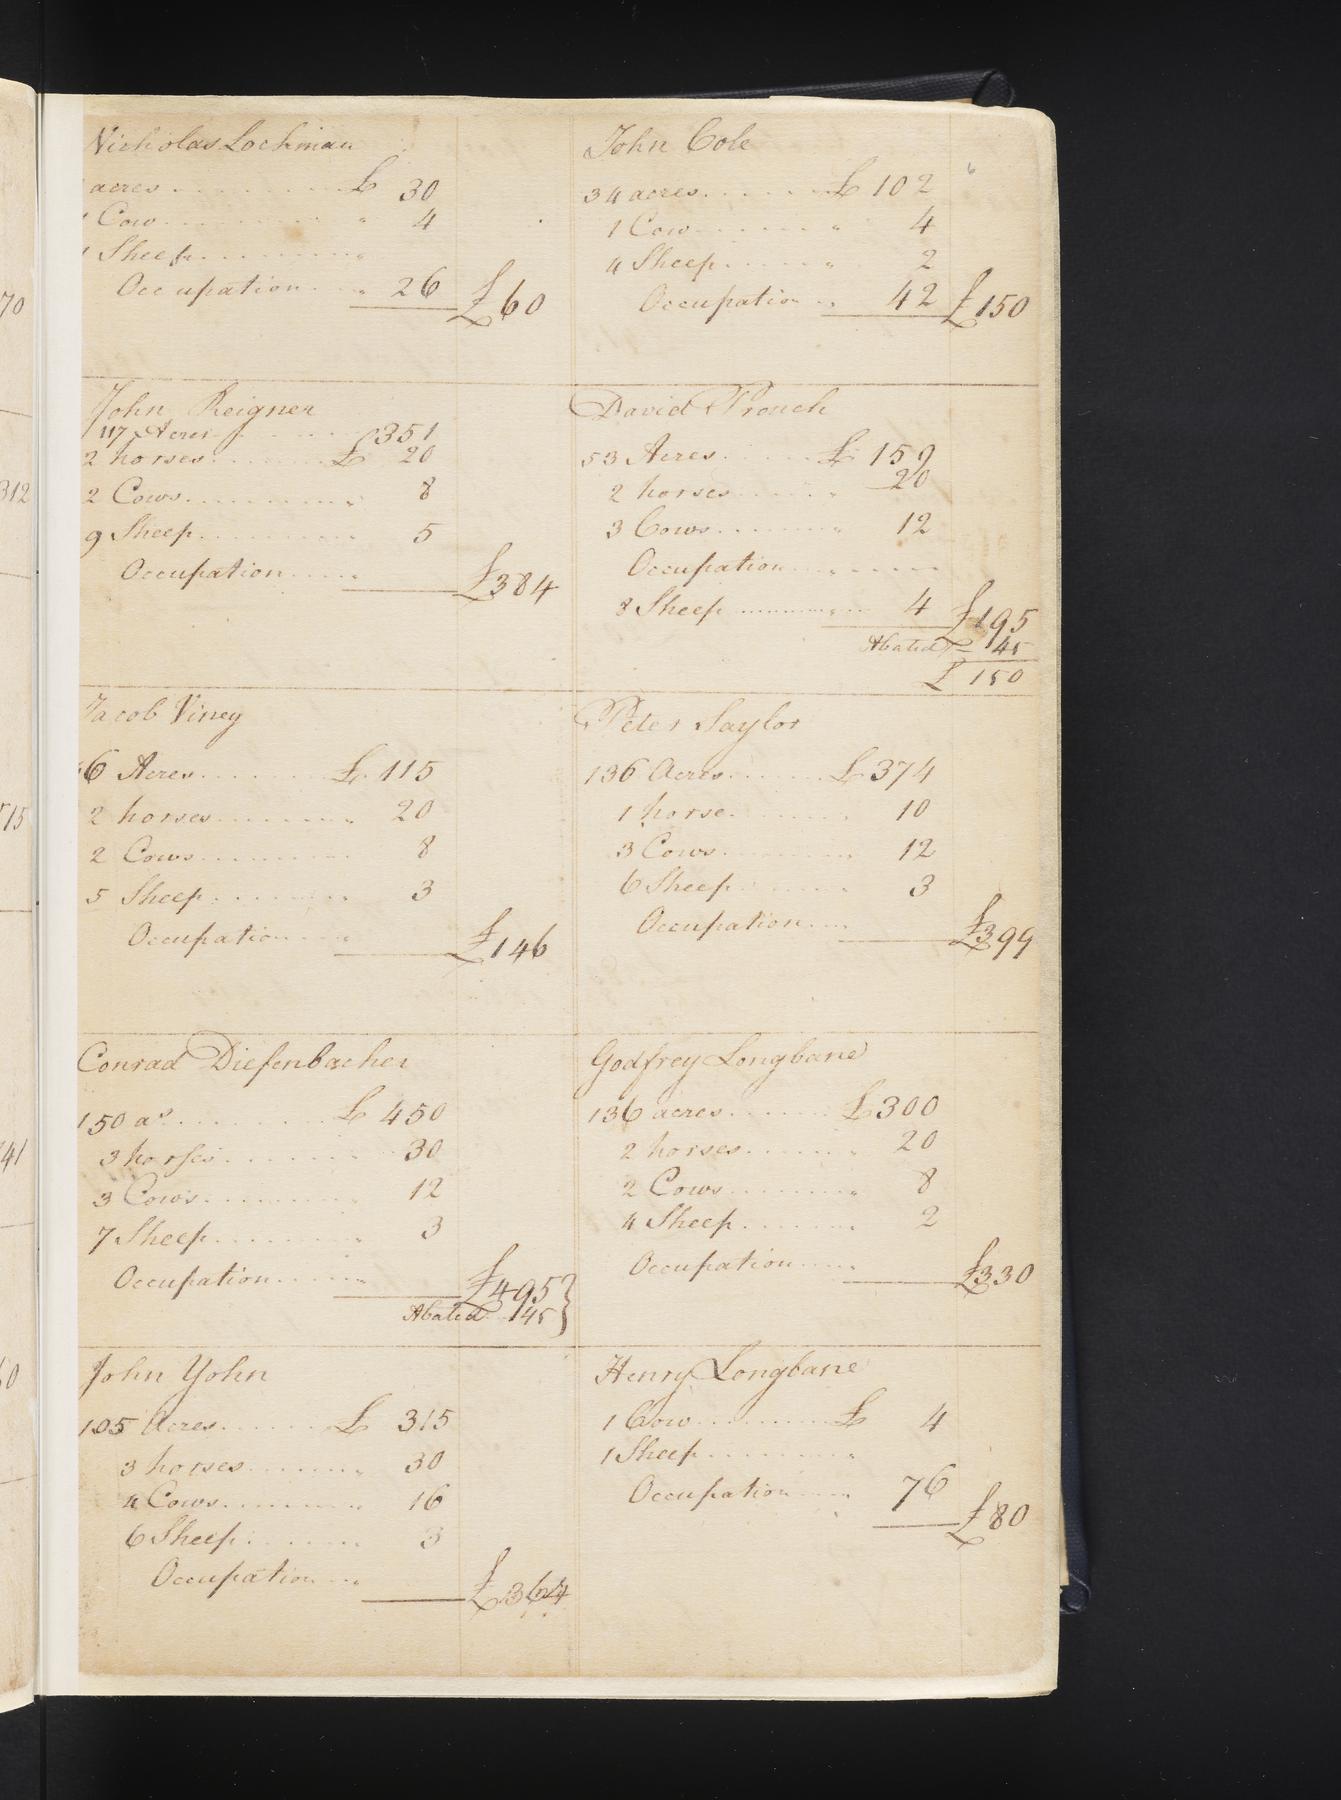 70
312
715
41
60
Nicholas Lochman
acres £ 30
Cow " 4
1 Sheep "
Occupation " 26 £60
John Reigner
117 Acres 351
2 horses £ 20
2 Cows " 8
9 Sheep " 5
Occupation " £384
Jacob Viney
6 Acres £ 115
2 horses " 20
2 Cows 8
5 Sheep " 3
Occupation " £146
Conrad Diefenbacher
150 as £ 450
3 horses 30
3 Cows " 12
7 Sheep " 3
Occupation " £495
Abated 45
John Yohn
105 Acres £ 315
3 horses " 30
4 Cows " 16
6 Sheep " 3
Occupation " £364
John Cole
34 acres £ 102
1 Cow " 4
4 Sheep " 2
Occupation " 42 £150
David Prouch
53 Acres £ 159
2 horses " 20
3 Cows " 12
Occupation "
8 Sheep " 4 £195
Abated 45
£ 150
Peter Saylor
136 Acres £374
1 horse " 10
3 Cows " 12
6 Sheep " 3
Occupation " £399
Godfrey Longbane
136 acres £300
2 horses " 20
2 Cows " 8
4 Sheep " 2
Occupation " £330
Henry Longbane
1 Cow £ 4
1 Sheep "
Occupation " 76 £80